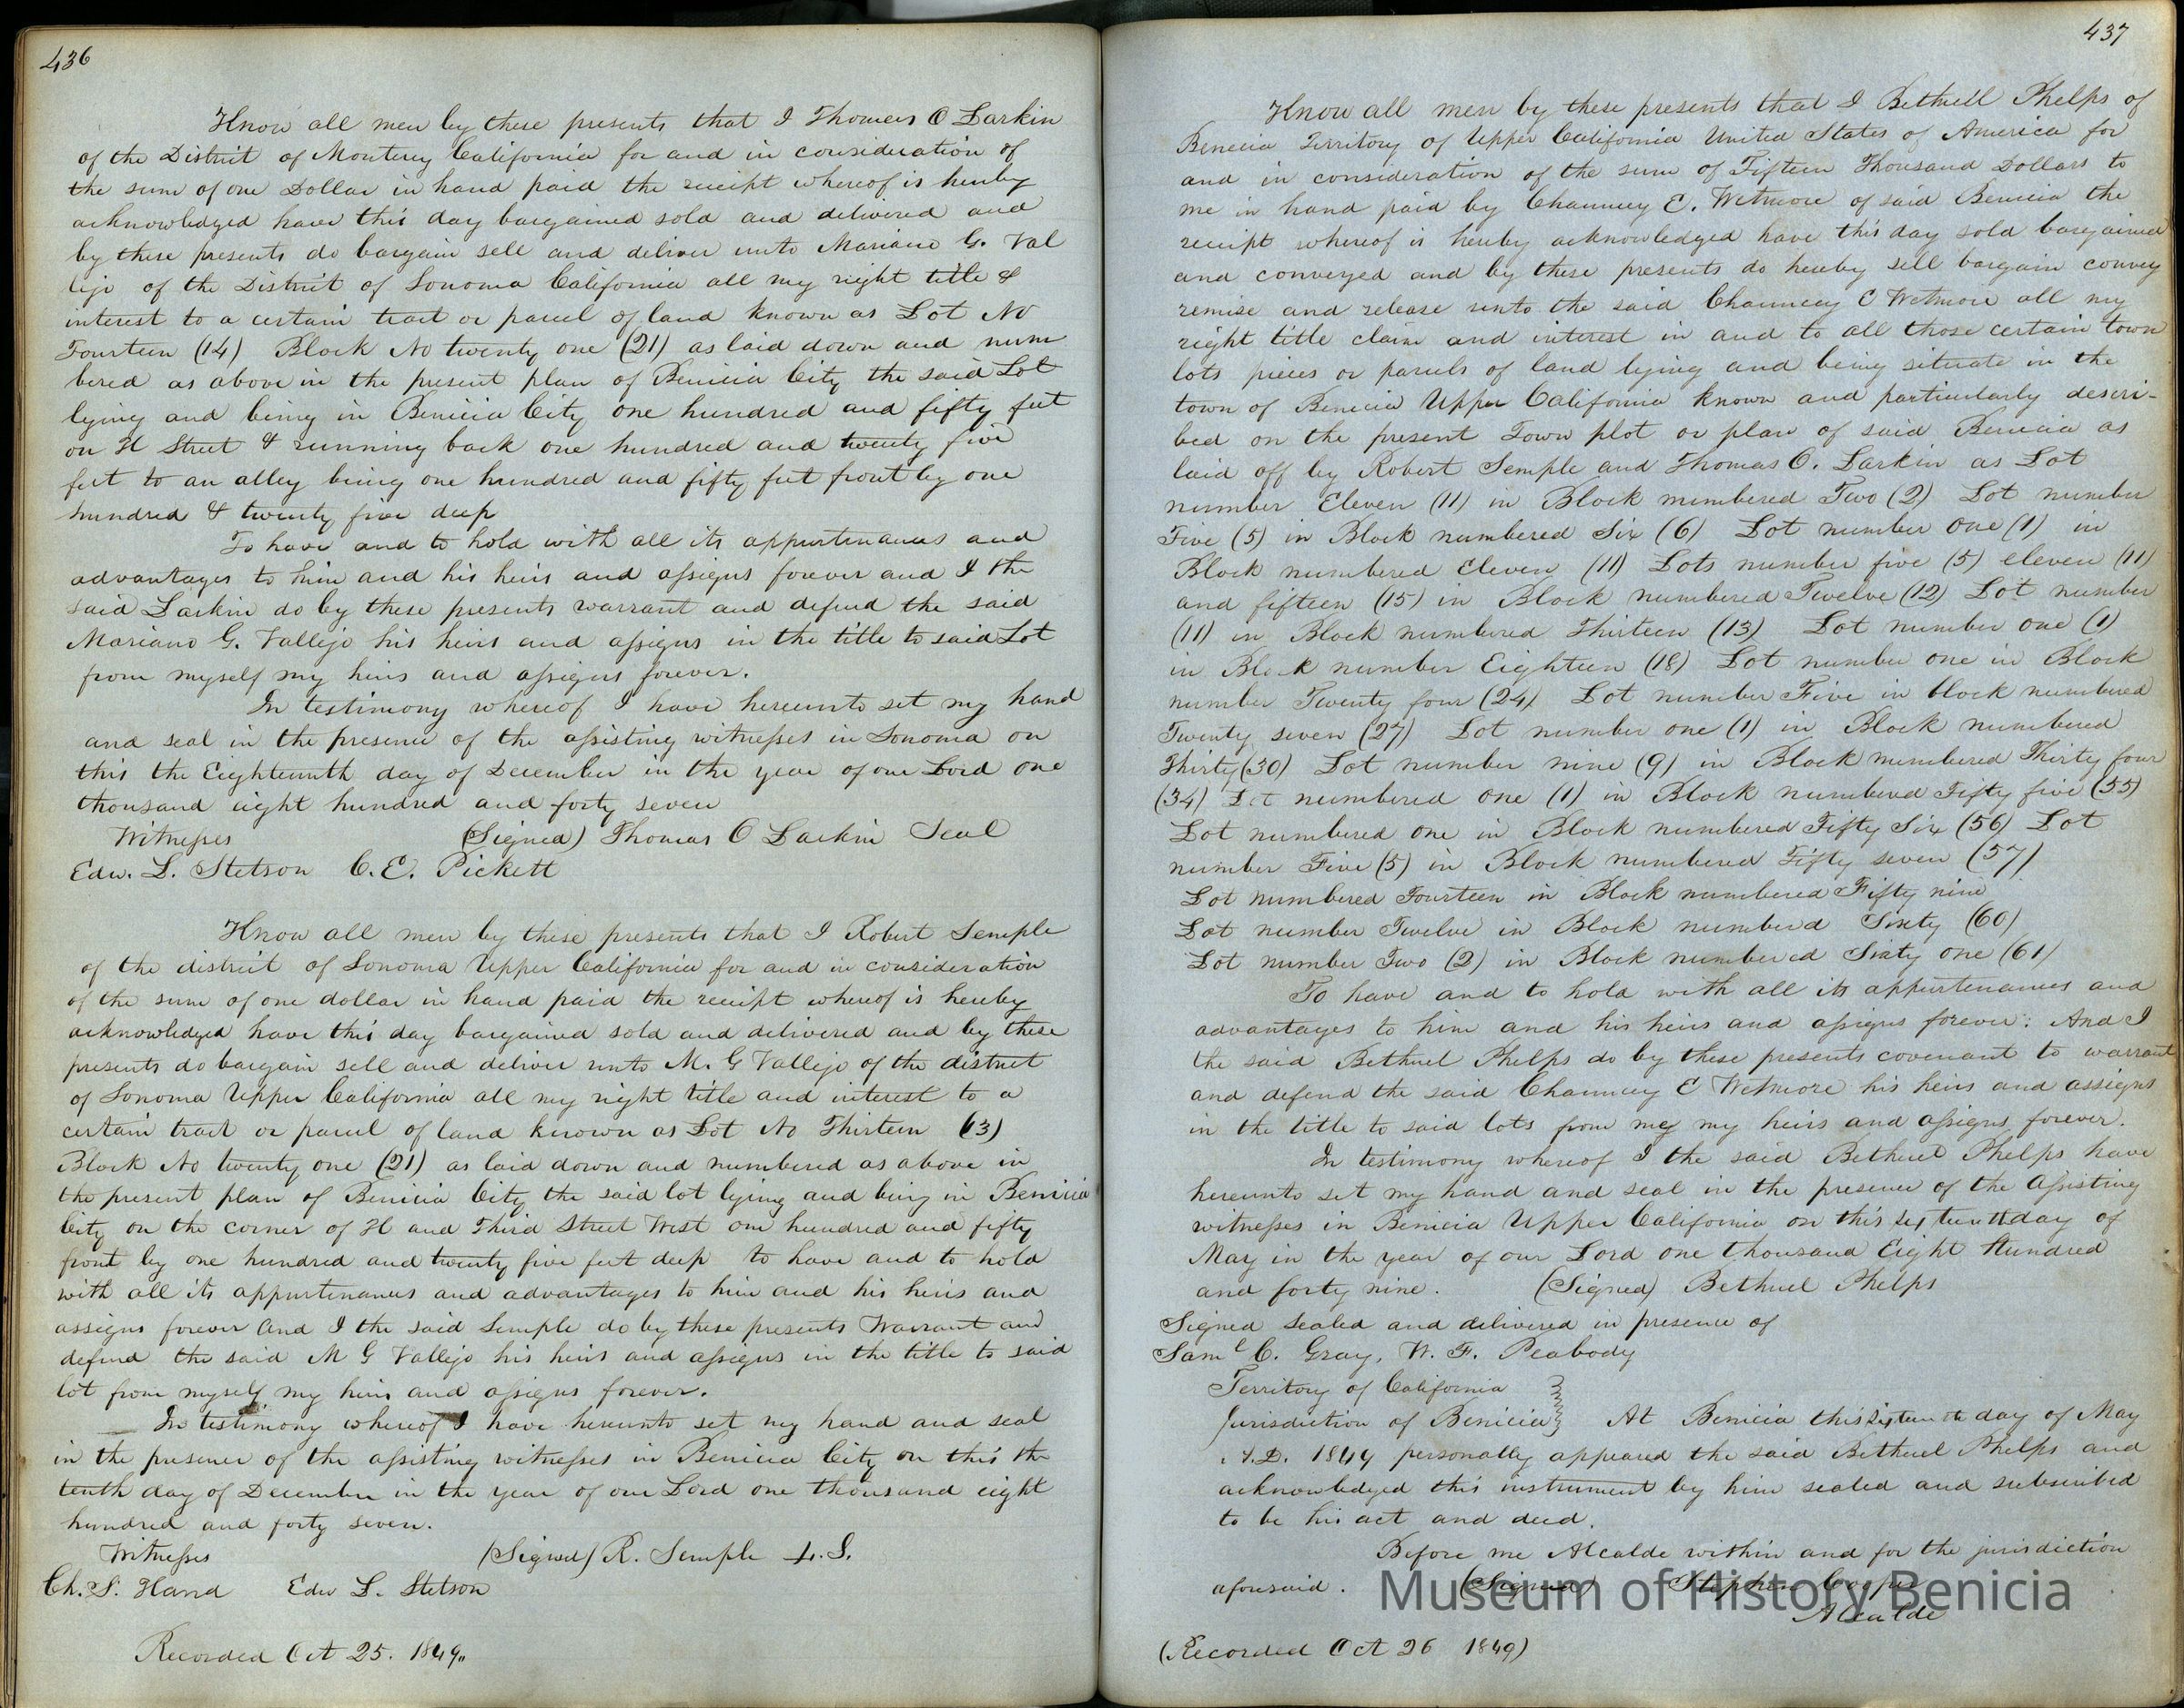 436
Know all men by these presents that I Thomas O Larkin
of the District of Monterey California for and in consideration of
the sum of one Dollar in hand paid the receipt whereof is hereby
acknowledged have this day bargained sold and delivered and
by these presents do bargain sell and deliver unto Mariano G. Val
lejo of the District of Sonoma California all my right title &
interest to a certain tract or parcel of land known as Lot No
Fourteen (14) Block No twenty one (21) as laid down and num
bered as above in the present plan of Benicia City the said Lot
lying and being in Benicia City one hundred and fifty feet
on H Street & running back one hundred and twenty five
feet to an alley being one hundred and fifty feet front by one
hundred & twenty five deep
To have and to hold with all its appurtenances and
advantages to him and his heirs and assigns forever and I the
said Larkin do by these presents warrant and defend the said
Mariano G. Vallejo his heirs and assigns in the title to said Lot
from myself my heirs and assigns forever.
In testimony whereof I have hereunto set my hand
and seal in the presence of the assisting witnesses in Sonoma on
this the Eighteenth day of December in the year of our Lord one
thousand eight hundred and forty seven
Witnesses (Signed) Thomas O Larkin Seal
Edw. L. Stetson C. E. Pickett
Know all men by these presents that I Robert Semple
of the district of Sonoma Upper California for and in consideration
of the sum of one dollar in hand paid the receipt whereof is hereby
acknowledged have this day bargained sold and delivered and by these
presents do bargain sell and deliver unto M. G Vallejo of the district
of Sonoma Upper California all my right title and interest to a
certain tract or parcel of land known as Lot No Thirteen (13)
Block No twenty one (21) as laid down and numbered as above in
the present plan of Benicia City the said lot lying and being in Benicia
City on the corner of H and Third Street West one hundred and fifty
front by one hundred and twenty five feet deep to have and to hold
with all its appurtenances and advantages to him and his heirs and
assigns forever and I the said Semple do by these presents Warrant and
defend the said M G Vallejo his heirs and assigns in the title to said
lot from myself my heirs and assigns forever.
In testimony whereof I have hereunto set my hand and seal
in the presence of the assisting witnesses in Benicia City on this the
tenth day of December in the year of our Lord one thousand eight
hundred and forty seven.
Witnesses (Signed) R. Semple L. S.
Ch. S. Hand Edw L. Stetson
Recorded Oct 25. 1849.
437
Know all men by these presents that I Bethuell Phelps of
Benicia Territory of Upper California United States of America for
and in consideration of the sum of Fifteen Thousand Dollars to
me in hand paid by Chauncey E. Wetmore of said Benicia the
receipt whereof is hereby acknowledged have this day sold bargained
and conveyed and by these presents do hereby sell bargain convey
remise and release unto the said Chauncey E Wetmore all my
right title claim and interest in and to all those certain town
lots pieces or parcels of land lying and being situate in the
town of Benicia Upper California known and particularly descri-
bed on the present Town plot or plan of said Benicia as
laid off by Robert Semple and Thomas O. Larkin as Lot
number Eleven (11) in Block numbered Two (2) Lot number
Five (5) in Block numbered Six (6) Lot number one (1) in
Block numbered Eleven (11) Lots number five (5) eleven (11)
and fifteen (15) in Block numbered Twelve (12) Lot number
(11) in Block numbered Thirteen (13) Lot number one (1)
in Block number Eighteen (18) Lot number one in Block
number Twenty four (24) Lot number Five in block numbered
Twenty seven (27) Lot number one (1) in Block numbered
Thirty (30) Lot number nine (9) in Block numbered Thirty four
(34) Lot numbered one (1) in Block numbered Fifty five (55)
Lot numbered one in Block numbered Fifty Six (56) Lot
number Five (5) in Block numbered Fifty seven (57)
Lot numbered Fourteen in Block numbered Fifty nine
Lot number Twelve in Block numberd Sixty (60)
Lot number Two (2) in Block numbered Sixty one (61)
To have and to hold with all its appurtenances and
advantages to him and his heirs and assigns forever: And I
the said Bethuel Phelps do by these presents covenant to warrant
and defend the said Chauncey E Wetmore his heirs and assigns
in the title to said lots from me my heirs and assigns forever.
In testimony whereof I the said Bethuel Phelps have
hereunto set my hand and seal in the presence of the assisting
witnesses in Benicia Upper California on this day of
May in the year of our Lord one thousand Eight Hundred
and forty nine. (Signed) Bethuel Phelps
Signed sealed and delivered in presence of
Saml C. Gray, W. F. Peabody
Territory of California
Jurisdiction of Benicia At Benicia this day of May
A.D. 1849 personally appeared the said Bethuel Phelps and
acknowledged this instrument by him sealed and subscribed
to be his act and deed.
Before me Alcalde within and for the jurisdiction
aforesaid. (Signed) Stephen Cooper
Alcalde
(Recorded Oct 26 1849)
Museum of History Benicia